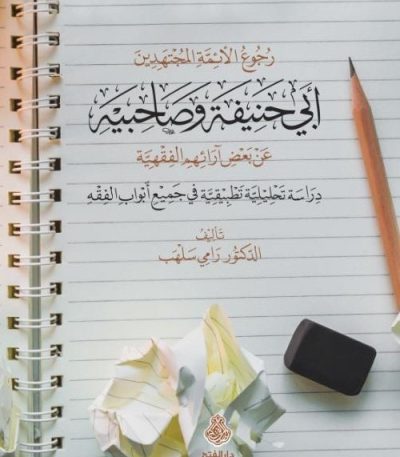 رُجُوعُ الأَئِمَّةِ المُجْتَهِدِينَ
أَبِي حَنِيفَةَ وَصَاحِبَيْهِ
عَنْ بَعْضِ آرَائِهِمِ الفِقْهِيَّةِ
دِرَاسَة تَحْلِيْلِيَّة تَطْبِيْقِيَّة فِي جَمِيْعِ أَبْوَابِ الفِقْهِ
تَأْلِيْفُ
الدّكتُور رَامِي سَلْهَب
دار الفتح